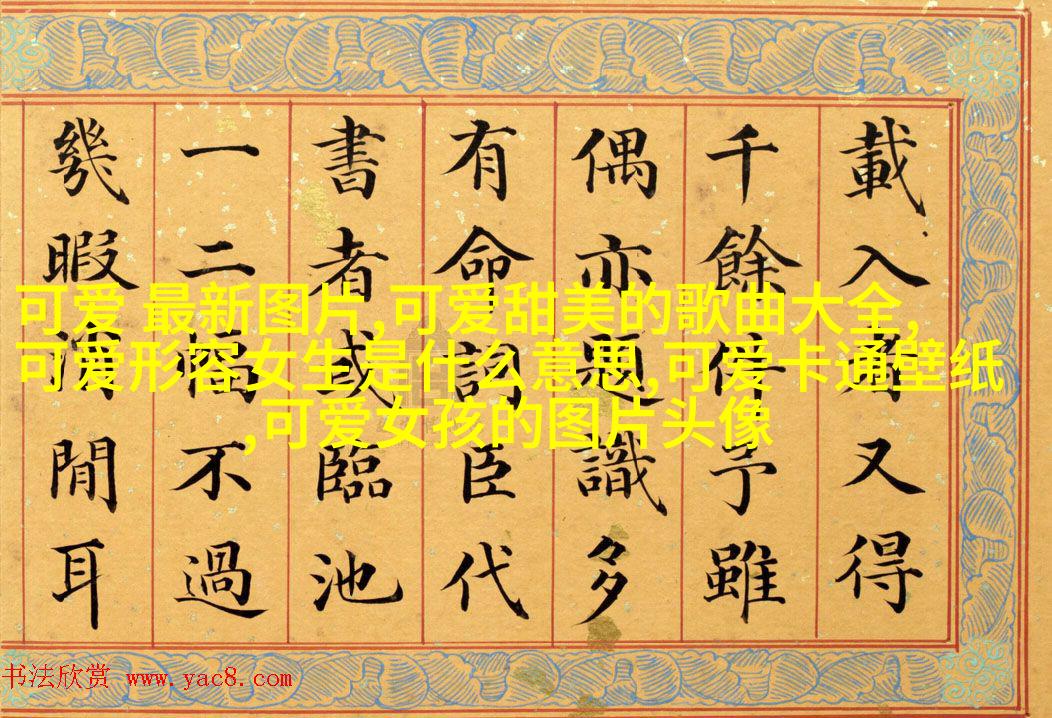 載入者又得
千餘件予雖
偶亦題識多
有命詞臣代
書者或臨池
一二幅不過
幾暇閒耳
可爱 最新图片,可爱甜美的歌曲大全,
可爱形容女生是什么意思,可爱卡通壁纸
,可爱女孩的图片头像
书法欣赏 www.yac8.com